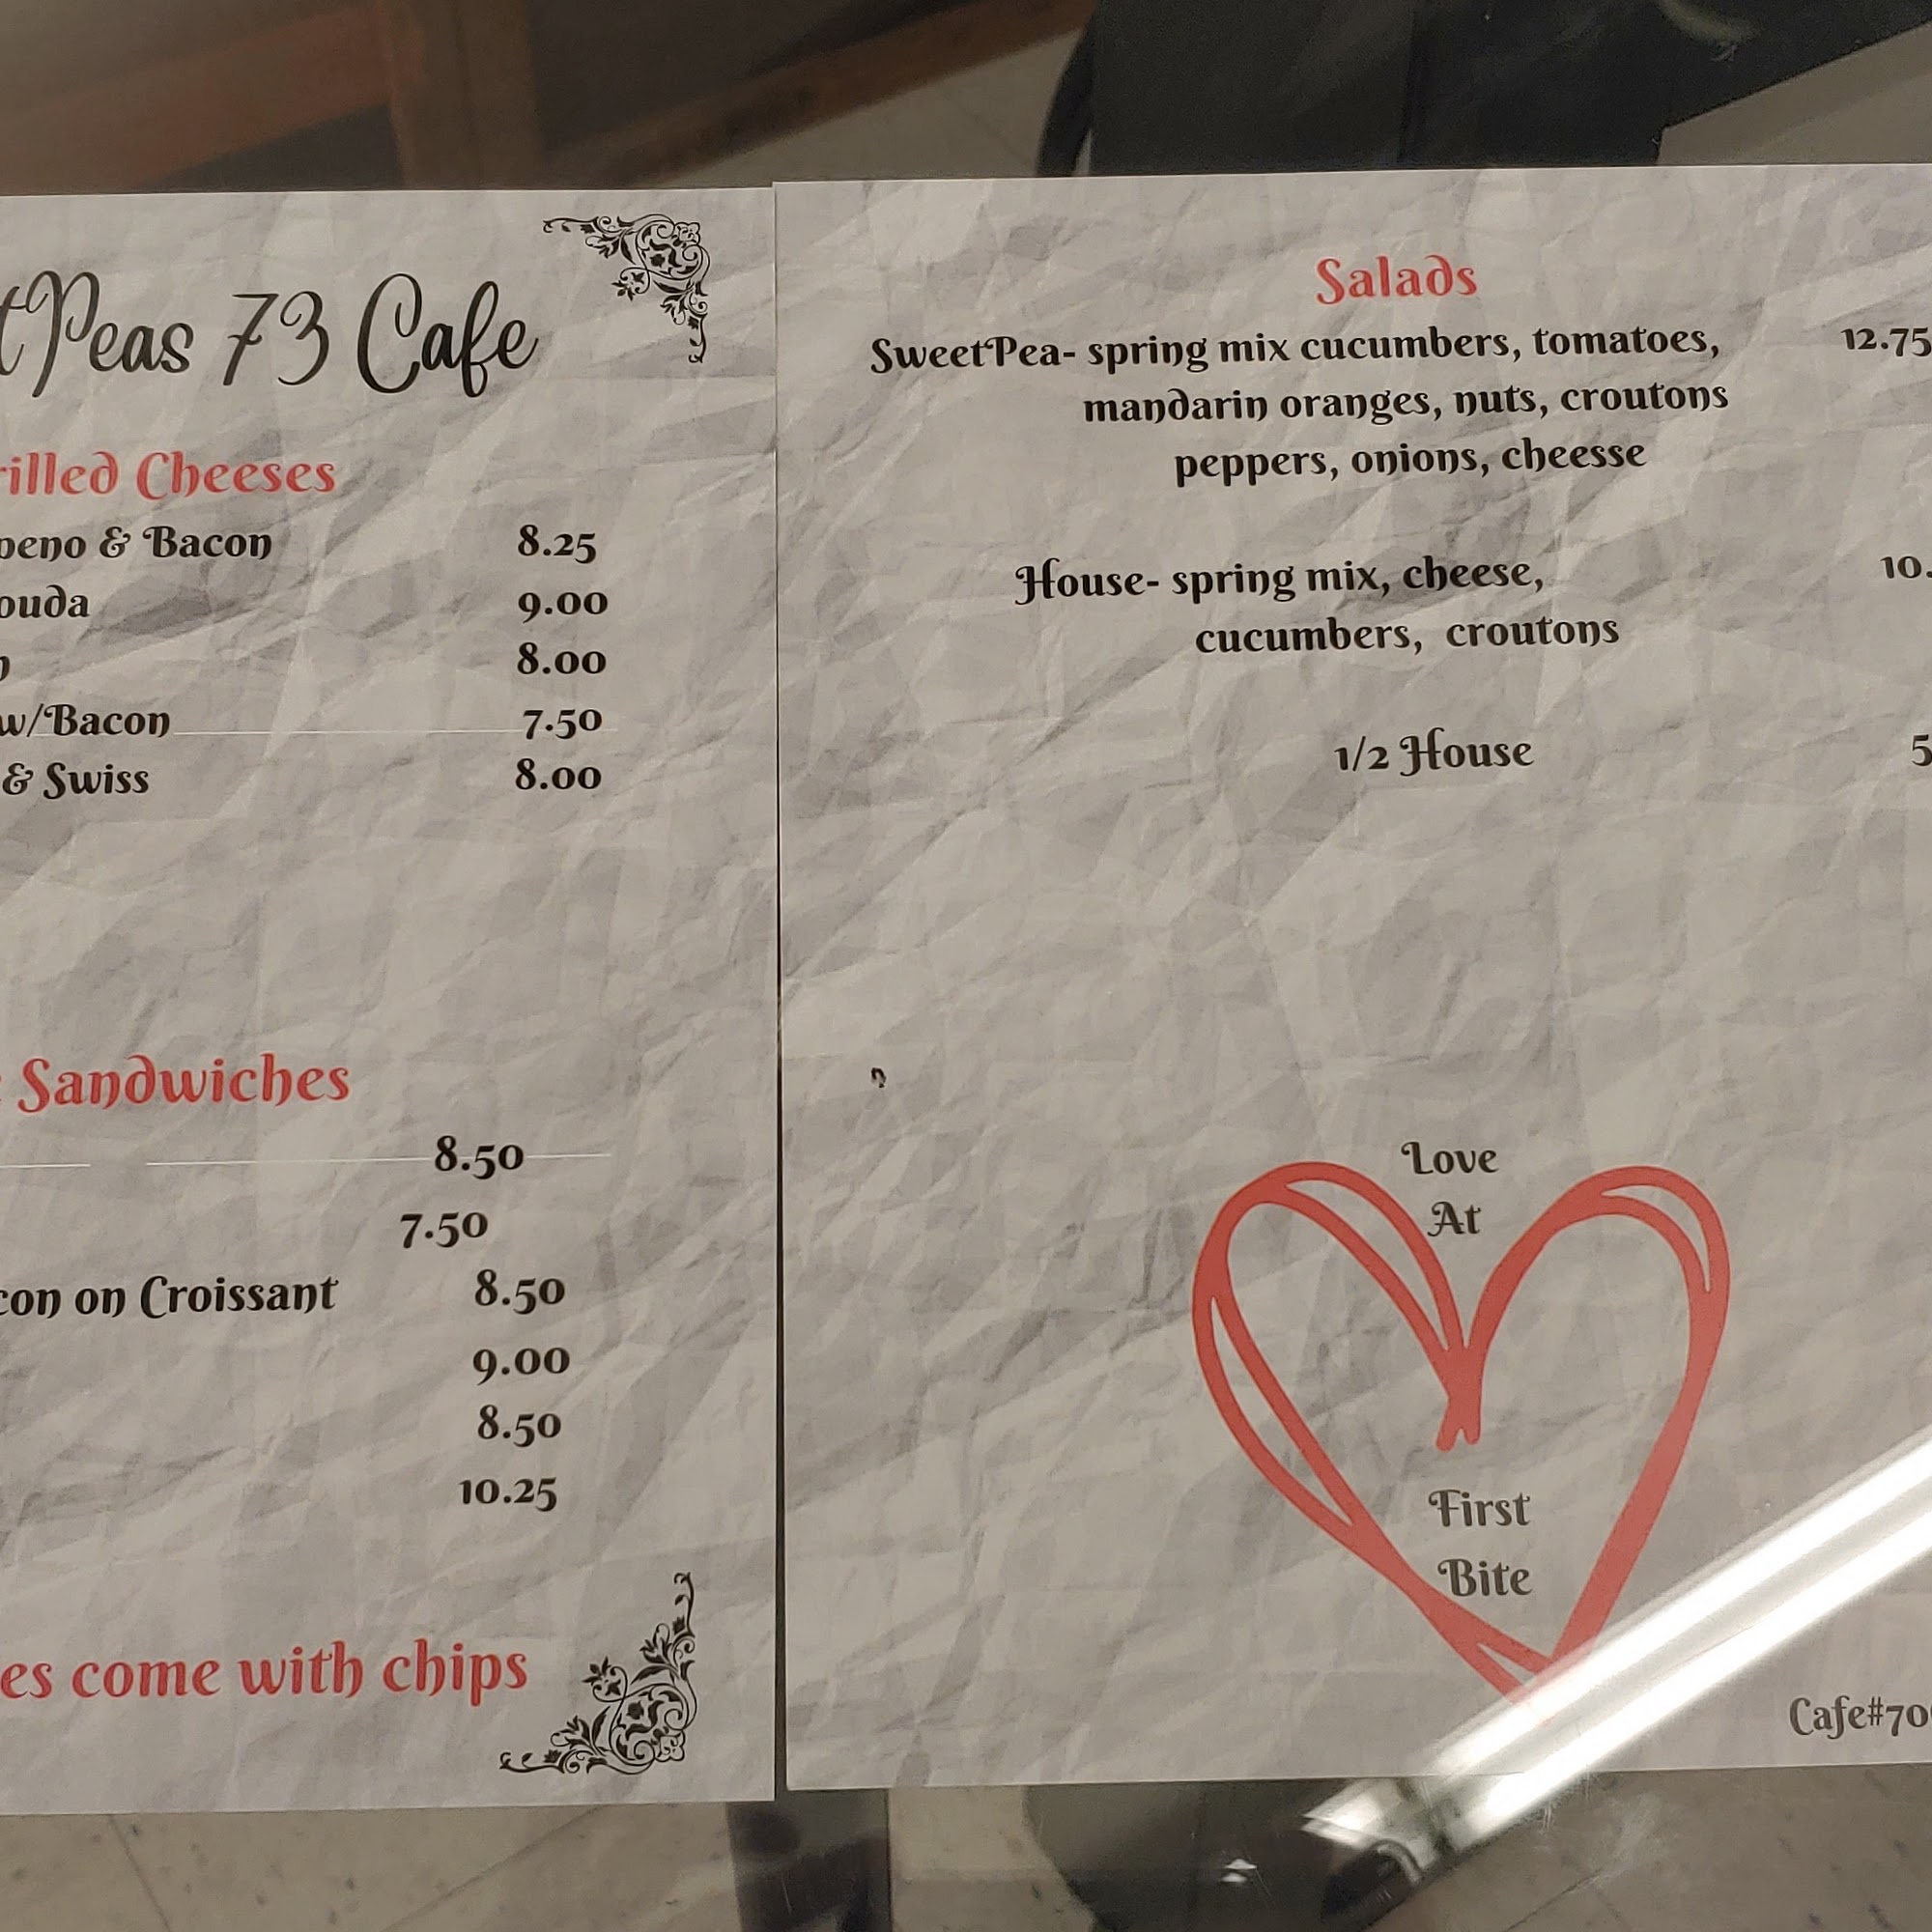 tPeas 73 Cafe
rilled Cheeses
peno & Bacon 8.25
ouda 9.00
8.00
w/Bacon 7.50
& Swiss 8.00
Sandwiches
8.50
7.50
con on Croissant 8.50
9.00
8.50
10.25
es come with chips
Salads
SweetPea- spring mix cucumbers, tomatoes, 12.75
mandarin oranges, nuts, croutons
peppers, onions, cheesse
House- spring mix, cheese, 10.
cucumbers, croutons
1/2 House 5
Love
At
First
Bite
Cafe#70